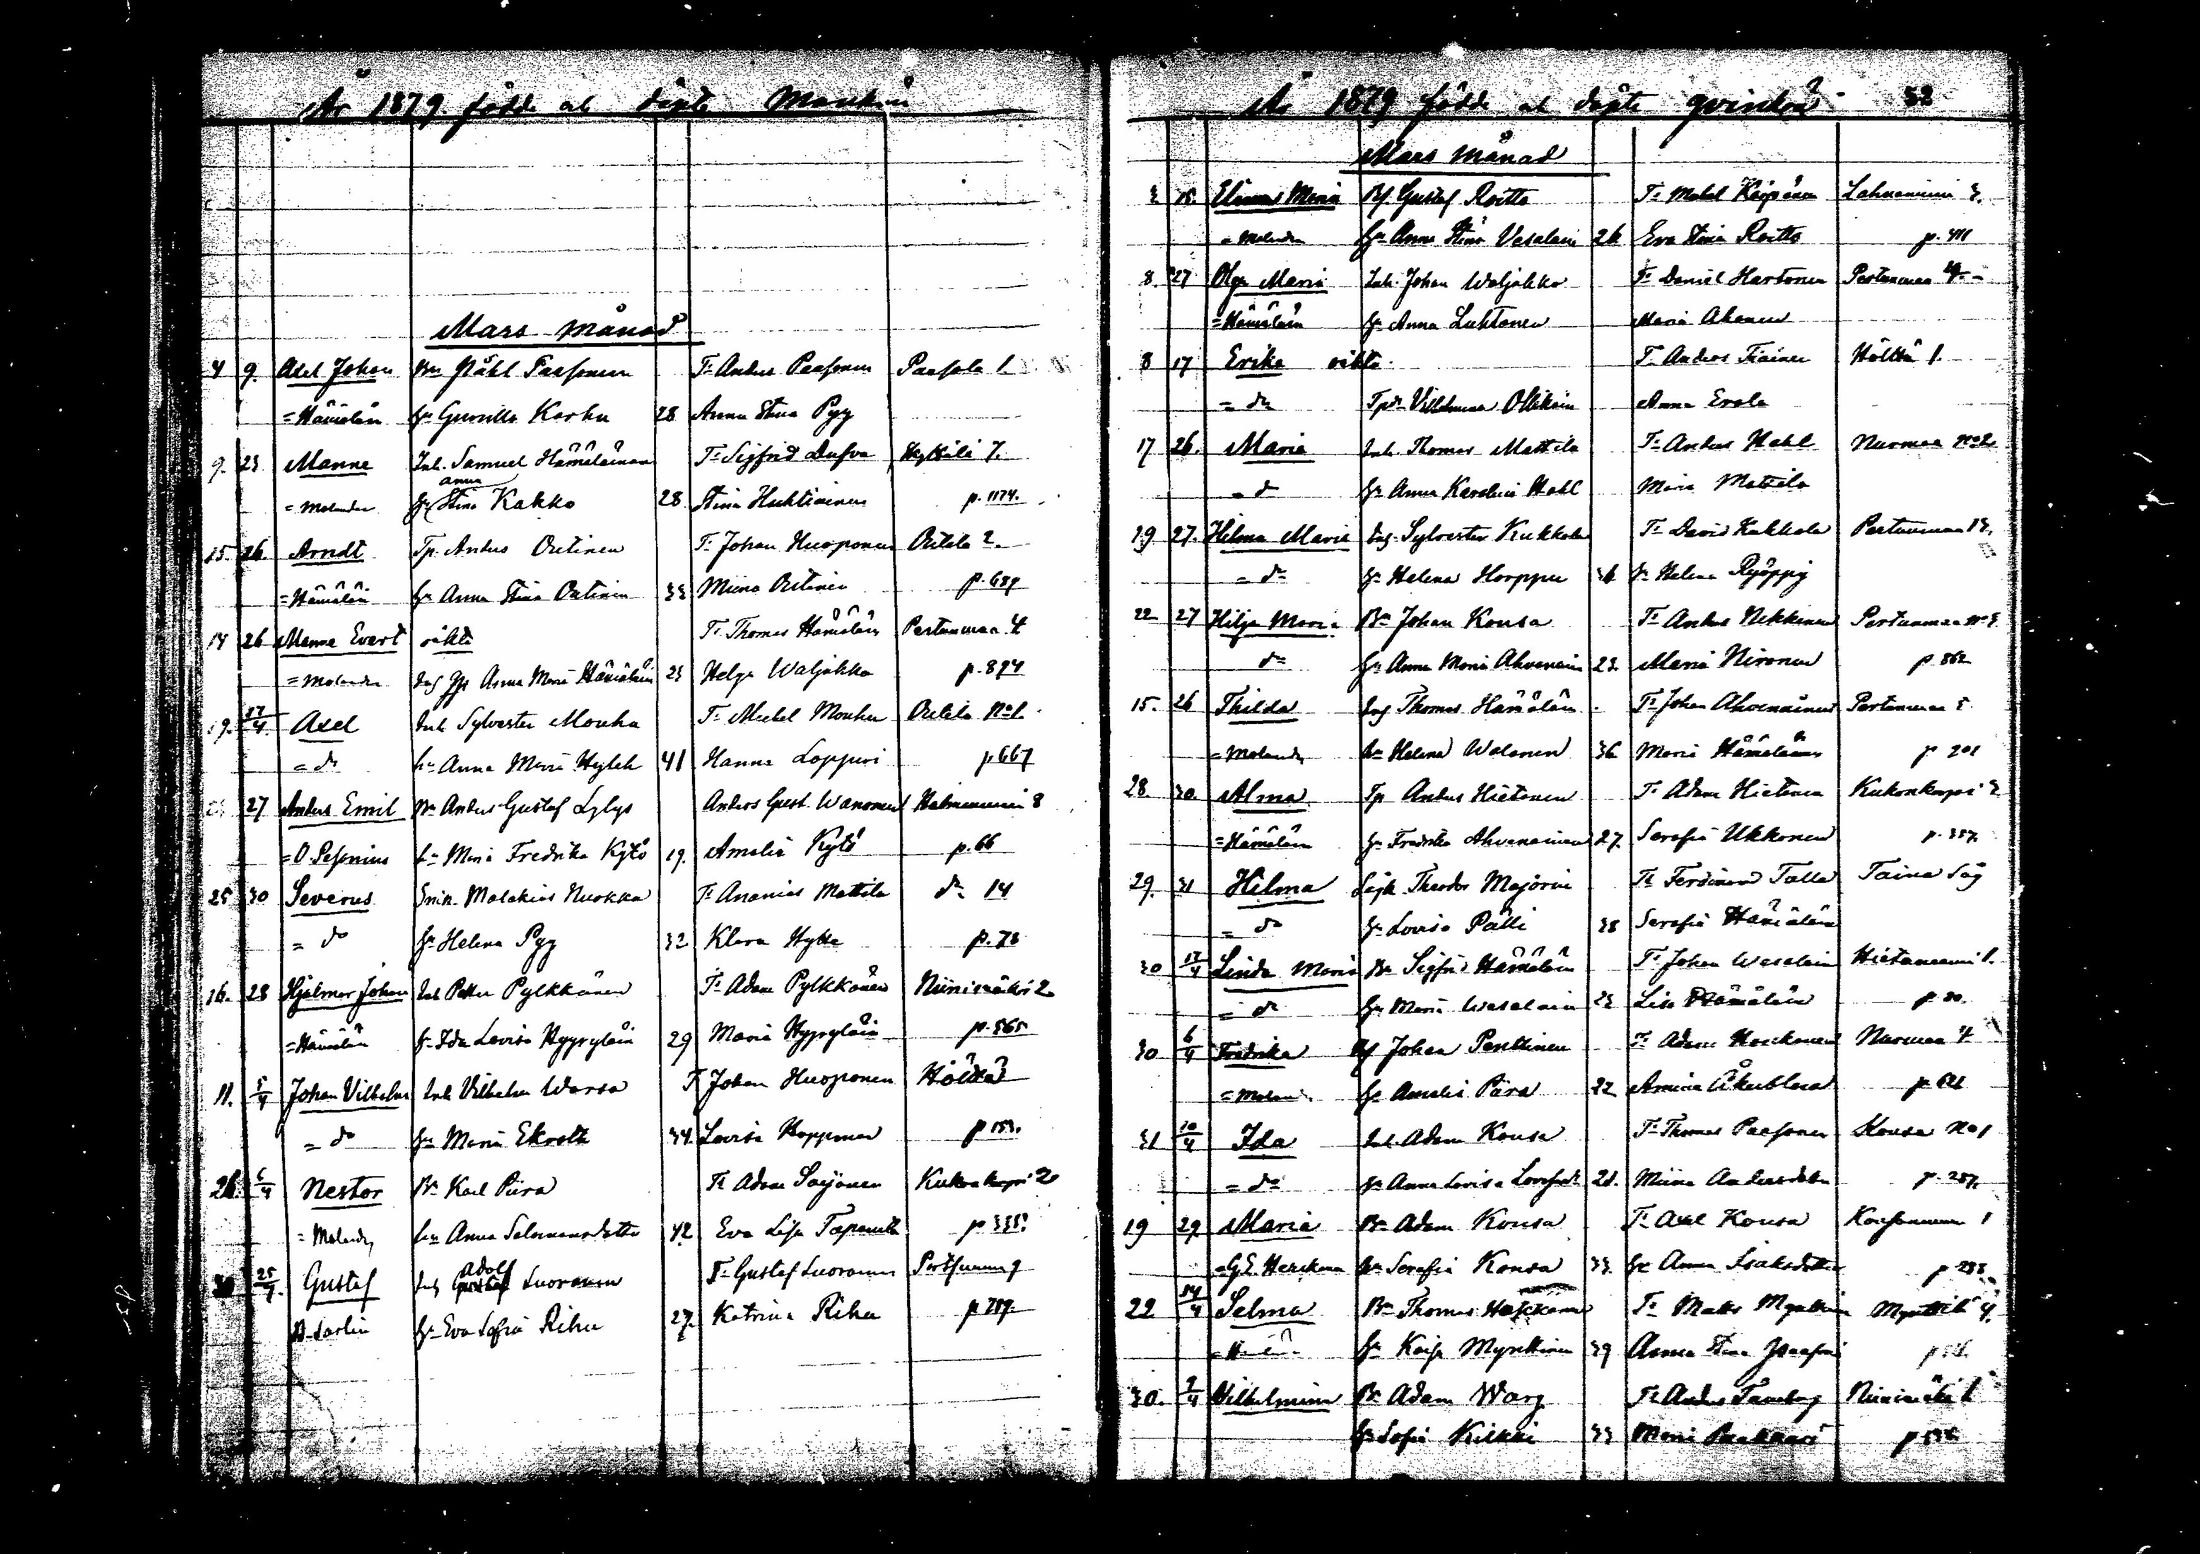 År 1879. födde ok döpte Mankön
Mars månad
4 9. Axel Johan Bn Påhl Paasonen Tr Anders Paasonen Paasola 1.
= Hämäläin hr Gunilla Karhu 28 Anna Stina Pyy
9. 23 Manne Inh. Samuel Hämäläinen Tr Sigfrid Dufva Hyttilä 7.
= Molander hr Anna Stina Kakko 28 Stina Huhtiainen p. 1174.
15. 26. Arndt Tp. Anders Outinen Tr Johan Huoponen Outila 2.
= Hämäläin hr Anna Stina Outinen 33 Miina Outinen p. 689
14 26 Manne Evert oäkta Tr Thomas Hämäläin Pertunmaa 4
= Molander Anna Maria Hämäläin 23 Helga Waljakka p. 894
19. 17/4 Axel Inh Sylvester Mouhu Tr Michel Mouhu Outila No 1.
= do hu Anna Maria Hyleh 41 Hanna Loppuri p 667
27 Anders Emil Bn Anders Gustaf Lylys Anders Gust. Wanonen Halmeniemi 8
= O. Pesonius hu Maria Fredrika Kytö 19. Amalia Kytö p. 66
25 30 Severus Malakias Nuokka Tr Ananias Mattila do 14
= do hr Helena Pyy 32 Klara Hytte p. 78
16. 28 Hjalmar Johan Inh Petter Pylkkänen Tr Adam Pylkkänen Niinimäki 2
= Hämäläin hr Ida Lovisa Hyyryläin 29 Maria Hyyryläin p. 565
11. 5/4 Johan Vilhelm Inh Vilhelm Warsa Tr Johan Huoponen Hölttä
= do hr Maria Ekroth 34. Lovisa Huoponen p 153.
26. 5/4 Nestor Bn Karl Piira Tr Adam Soijonen Kukonkorpi 2
= Molander hu Anna Salomonsdotter 42 Eva Lisa p 333.
30 25/4. Gustaf Adolf Luoranen Tr Gustaf Luoranen
A. Sarlin hr Eva Sofia Rihu 27. Katrina Rihu p 789.
År 1879 födde ok döpte qvinkön 52
Mars månad
3 15. Maria Gustaf Roitto Tr Lahnaniemi 3.
= Molander hr Anna Stina Vesalain 26 Eva Stina Roitto p. 411
8. 27 Olga Maria Inh. Johan Waljakka Tr Daniel Hartonen Pertunmaa 4
= Hämäläin hr Anna Luhtanen Maria Ahonen
8 17 Erika oäkta. Tr Anders Tiainen Hölttä 1.
= do Vilhelmina Ollikain Anna Erola
17 26. Maria Inh. Thomas Mattila Tr Anders Hahl Nurmaa No 2.
= d hr Anna Karolina Hahl Maria Mattila
19 27. Hilma Maria Sylvester Kukkola Tr David Kukkola Pertunmaa 13.
= do hr Helena Horppu 36 hr Helena Ryöppy
22 27 Hilja Maria Bn Johan Kousa Tr Anders Ukkonen Pertunmaa No 5
do hr Anna Maria Ahvenain 23. Maria Nironen p. 862
15. 26 Thilda Thomas Hämäläin Tr Johan Ahvenainen Pertunmaa 5
= Molander hr Helena Walonen 36 Maria Hämäläinen p 201
28. 30. Alma Tp Anders Hietanen Tr Adam Hietanen Kukonkorpi 2
= Hämäläin hr Fredrika Ahvenainen 27. Serafia Ukkonen p. 337.
29. 31 Hilma Theodor Majorin Tr Ferdinand Talla Taina Såg
= do hr Lovisa Pälli 38 Serafia Hämäläin
30 17/4 Linda Maria Bn Sigfrid Hämäläin Tr Johan Wesalain Hietaniemi 1.
= do hr Maria Wesalain 23 Lisa Hämäläin p. 80.
30 6/4 Fredrika Johan Penttinen Tr Adam Houkanen Nurmaa 4
= Molander hr Amalia Piira 22 Amina Åkerblom
31 10/4 Ida Inh Adam Kousa Tr Thomas Paasonen Kousa No 1
= do hr Anna Lovisa 28. Miina Andersdotter p. 287.
19 29 Maria Bn Adam Kousa Tr Axel Kousa 1
= G. E. hu Serafia Kousa 33. hr Anna Isaksdotter p 288
22 14/4 Selma Bn Thomas Tr Matts Myntti 4.
hr Kaisa Mynttinen 39 Anna Stina
30. 9/4 Wilhelmina Bn Adam Warg Tr Anders Tamberg Niinimäki 1
hr Sofia Kilkki 33 Maria